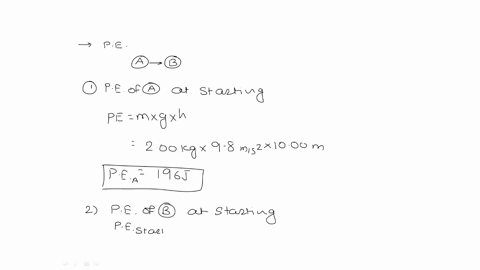 → P.E.
A → B
① P.E. of A at Starting
PE = m×g×h
= 2.00 kg × 9.8 m/s2 × 10.00 m
P.E.A = 196J
2) P.E. of B at Starting
P.E. Starl